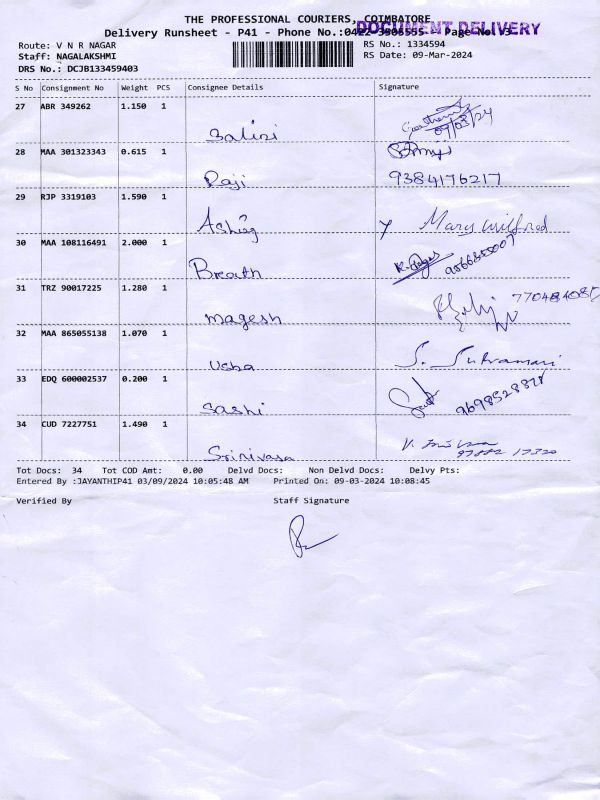 THE PROFESSIONAL COURIERS, COIMBATORE
DOCUMENT DELIVERY
Delivery Runsheet - P41 - Phone No.:0422-3505555 - Page No. 3
Route: V N R NAGAR
RS No.: 1334594
Staff: NAGALAKSHMI
RS Date: 09-Mar-2024
DRS No.: DCJB133459403
S No Consignment No Weight PCS Consignee Details Signature
27 ABR 349262 1.150 1
Salini 09/03/24
28 MAA 301323343 0.615 1
Raji 9384176217
29 RJP 3319103 1.590 1
Mary Wilfred
30 MAA 108116491 2.000 1
Breath
31 TRZ 90017225 1.280 1
magesh
32 MAA 865055138 1.070 1
Usha S.
33 EDQ 600002537 0.200 1
Sashi
34 CUD 7227751 1.490 1
Srinivasa V.
Tot Docs: 34 Tot COD Amt: 0.00 Delvd Docs: Non Delvd Docs: Delvy Pts:
Entered By :JAYANTHIP41 03/09/2024 10:05:48 AM Printed On: 09-03-2024 10:08:45
Verified By Staff Signature